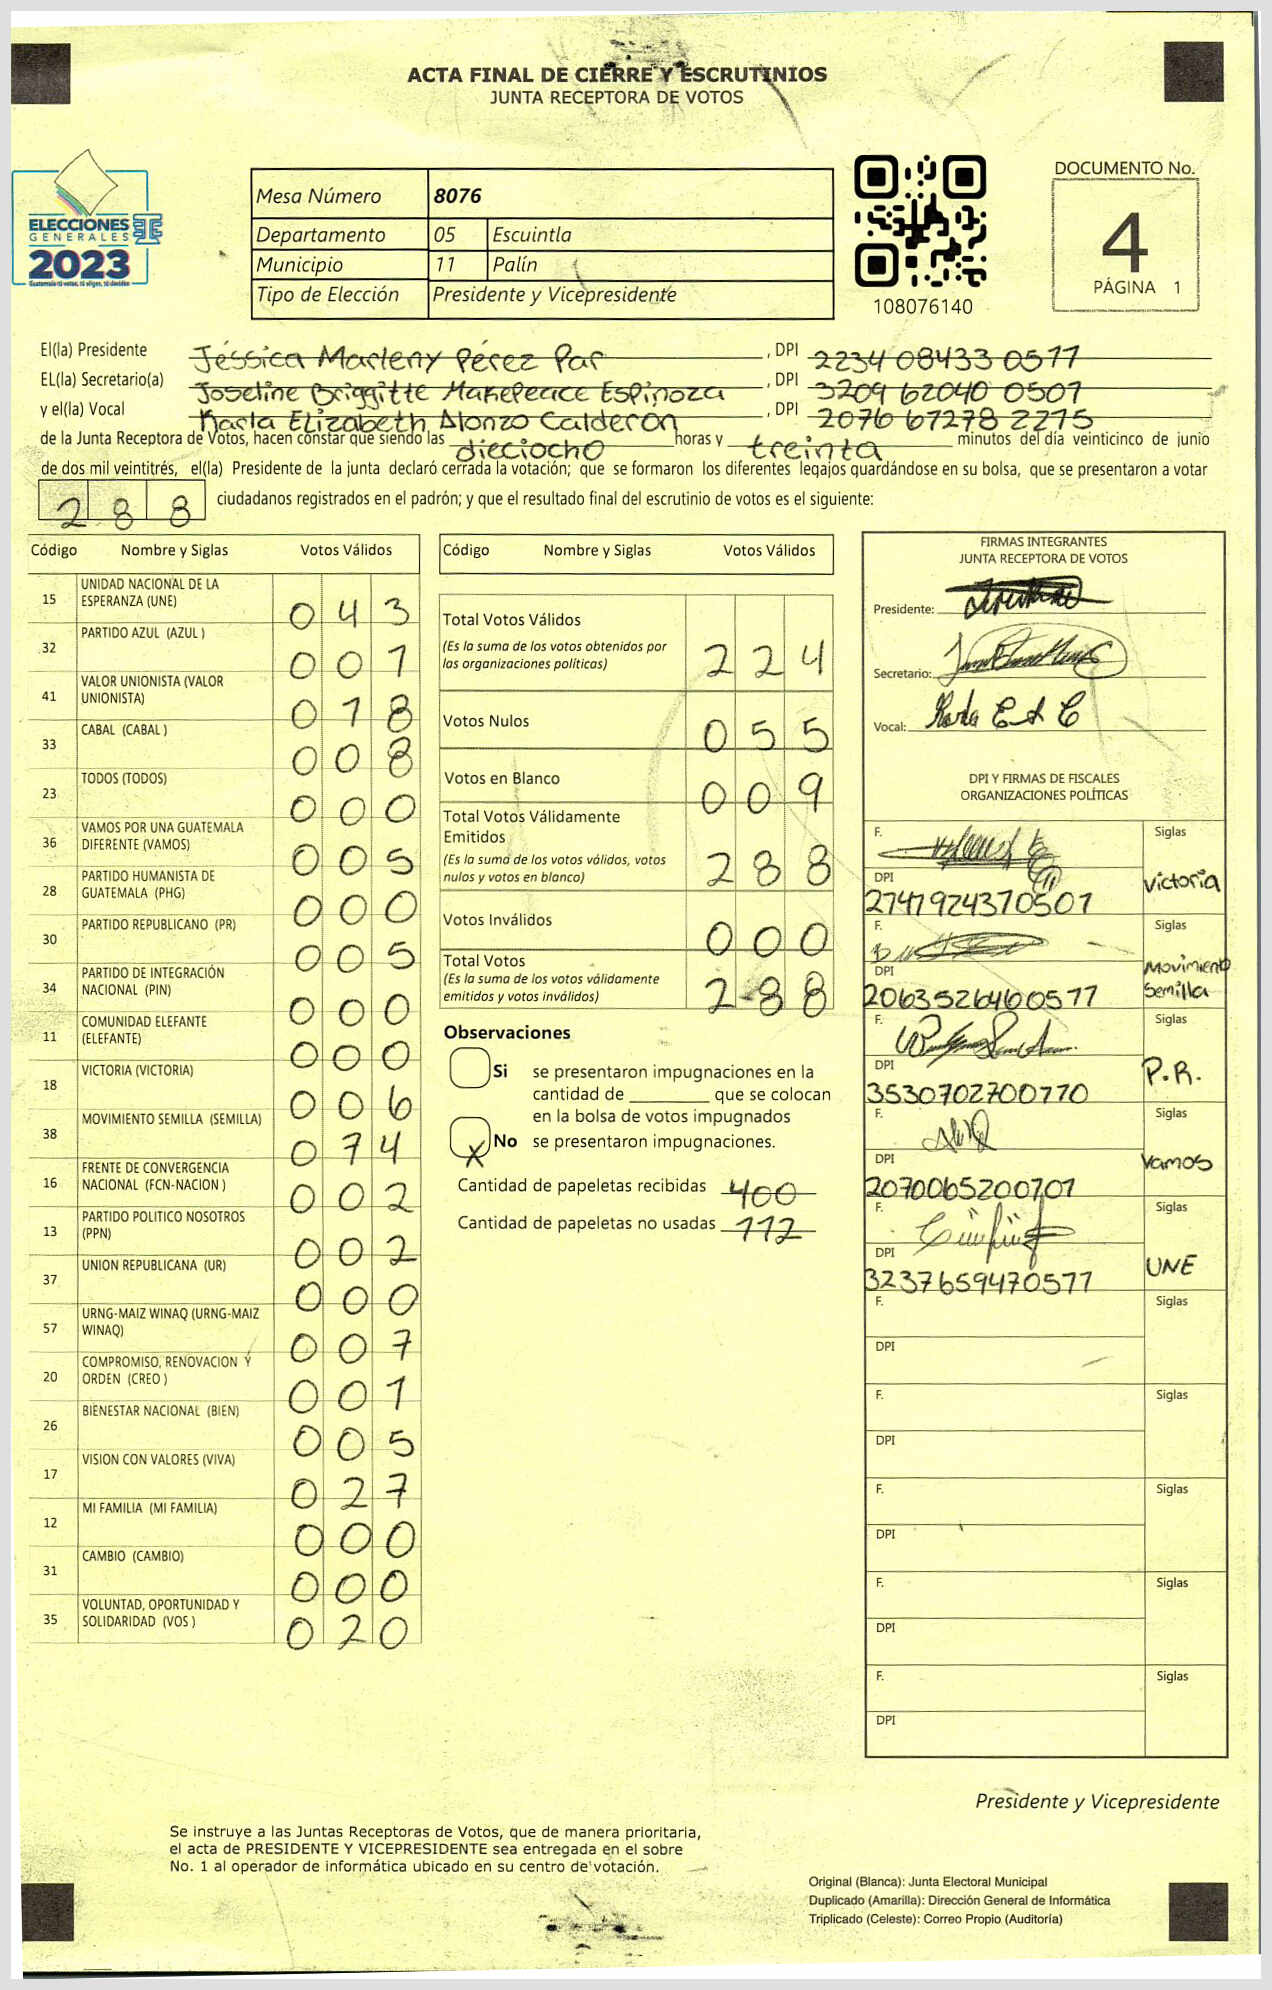 ACTA FINAL DE CIERRE Y ESCRUTINIOS
JUNTA RECEPTORA DE VOTOS
ELECCIONES
GENERALES
2023
Guatemala tú votas, tú eliges, tú decides
Mesa Número 8076
Departamento 05 Escuintla
Municipio 11 Palín
Tipo de Elección Presidente y Vicepresidente
108076140
DOCUMENTO No.
4
PÁGINA 1
El(la) Presidente Jéssica Marleny Pérez Par , DPI 2234 08433 0577
EL(la) Secretario(a) Joseline Briggitte Makepeace Espinoza , DPI 3209 62040 0507
y el(la) Vocal Karla Elizabeth Alonzo Calderón , DPI 2076 67278 2275
de la Junta Receptora de Votos, hacen constar que siendo las dieciocho horas y treinta minutos del día veinticinco de junio
de dos mil veintitrés, el(la) Presidente de la junta declaró cerrada la votación; que se formaron los diferentes legajos guardándose en su bolsa, que se presentaron a votar
288 ciudadanos registrados en el padrón; y que el resultado final del escrutinio de votos es el siguiente:
Código Nombre y Siglas Votos Válidos
15 UNIDAD NACIONAL DE LA ESPERANZA (UNE) 043
32 PARTIDO AZUL (AZUL ) 001
41 VALOR UNIONISTA (VALOR UNIONISTA) 018
33 CABAL (CABAL ) 008
23 TODOS (TODOS) 000
36 VAMOS POR UNA GUATEMALA DIFERENTE (VAMOS) 005
28 PARTIDO HUMANISTA DE GUATEMALA (PHG) 000
30 PARTIDO REPUBLICANO (PR) 005
34 PARTIDO DE INTEGRACIÓN NACIONAL (PIN) 000
11 COMUNIDAD ELEFANTE (ELEFANTE) 000
18 VICTORIA (VICTORIA) 006
38 MOVIMIENTO SEMILLA (SEMILLA) 074
16 FRENTE DE CONVERGENCIA NACIONAL (FCN-NACION ) 002
13 PARTIDO POLITICO NOSOTROS (PPN) 002
37 UNION REPUBLICANA (UR) 000
57 URNG-MAIZ WINAQ (URNG-MAIZ WINAQ) 007
20 COMPROMISO, RENOVACION Y ORDEN (CREO ) 001
26 BIENESTAR NACIONAL (BIEN) 005
17 VISION CON VALORES (VIVA) 027
12 MI FAMILIA (MI FAMILIA) 000
31 CAMBIO (CAMBIO) 000
35 VOLUNTAD, OPORTUNIDAD Y SOLIDARIDAD (VOS ) 020
Código Nombre y Siglas Votos Válidos
Total Votos Válidos
(Es la suma de los votos obtenidos por
las organizaciones políticas) 224
Votos Nulos 055
Votos en Blanco 009
Total Votos Válidamente
Emitidos
(Es la suma de los votos válidos, votos
nulos y votos en blanco) 288
Votos Inválidos 000
Total Votos
(Es la suma de los votos válidamente
emitidos y votos inválidos) 288
Observaciones
Si se presentaron impugnaciones en la
cantidad de ________ que se colocan
en la bolsa de votos impugnados
X No se presentaron impugnaciones.
Cantidad de papeletas recibidas 400
Cantidad de papeletas no usadas 112
FIRMAS INTEGRANTES
JUNTA RECEPTORA DE VOTOS
Presidente:
Secretario:
Vocal: Karla E A C
DPI Y FIRMAS DE FISCALES
ORGANIZACIONES POLÍTICAS
F. Siglas
DPI Victoria
2741924370501
F. Siglas
DPI Movimiento
2063526460577 Semilla
F. Siglas
DPI P.R.
3530702700770
F. Siglas
DPI Vamos
2070065200701
F. Siglas
DPI UNE
3237659470577
F. Siglas
DPI
F. Siglas
DPI
F. Siglas
DPI
F. Siglas
DPI
F. Siglas
DPI
Presidente y Vicepresidente
Se instruye a las Juntas Receptoras de Votos, que de manera prioritaria,
el acta de PRESIDENTE Y VICEPRESIDENTE sea entregada en el sobre
No. 1 al operador de informática ubicado en su centro de votación.
Original (Blanca): Junta Electoral Municipal
Duplicado (Amarilla): Dirección General de Informática
Triplicado (Celeste): Correo Propio (Auditoría)